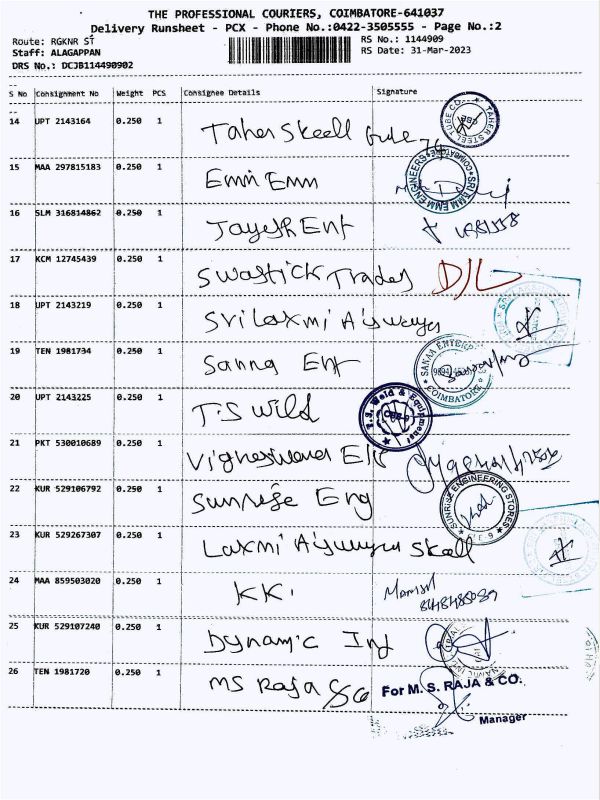 THE PROFESSIONAL COURIERS, COIMBATORE-641037
Delivery Runsheet - PCX - Phone No.:0422-3505555 - Page No.:2
Route: RGKNR ST
RS No.: 1144909
Staff: ALAGAPPAN
RS Date: 31-Mar-2023
DRS No.: DCJB114490902
S No Consignment No Weight PCS Consignee Details Signature
14 UPT 2143164 0.250 1 Taher Steell
TAHER STEEL TUBE CO. CBE
15 MAA 297815183 0.250 1 Emm Emm
SRI EMM ENGINEERS COIMBATORE
16 SLM 316814862 0.250 1 Jayesh Ent
17 KCM 12745439 0.250 1 Swastick Trades
18 UPT 2143219 0.250 1 Sri Laxmi
19 TEN 1981734 0.250 1 Sanna Ent
SANAA ENTERPR COIMBATORE
20 UPT 2143225 0.250 1 T.S Wild
T.S. Weld & Equipments
21 PKT 530010689 0.250 1
22 KUR 529106792 0.250 1 Sunrise Eng
SUNRISE ENGINEERING STORES
23 KUR 529267307 0.250 1 Laxmi
24 MAA 859503020 0.250 1 KK.
25 KUR 529107240 0.250 1 Dynamic Ind
26 TEN 1981720 0.250 1 MS Raja
For M. S. RAJA & CO.
Manager